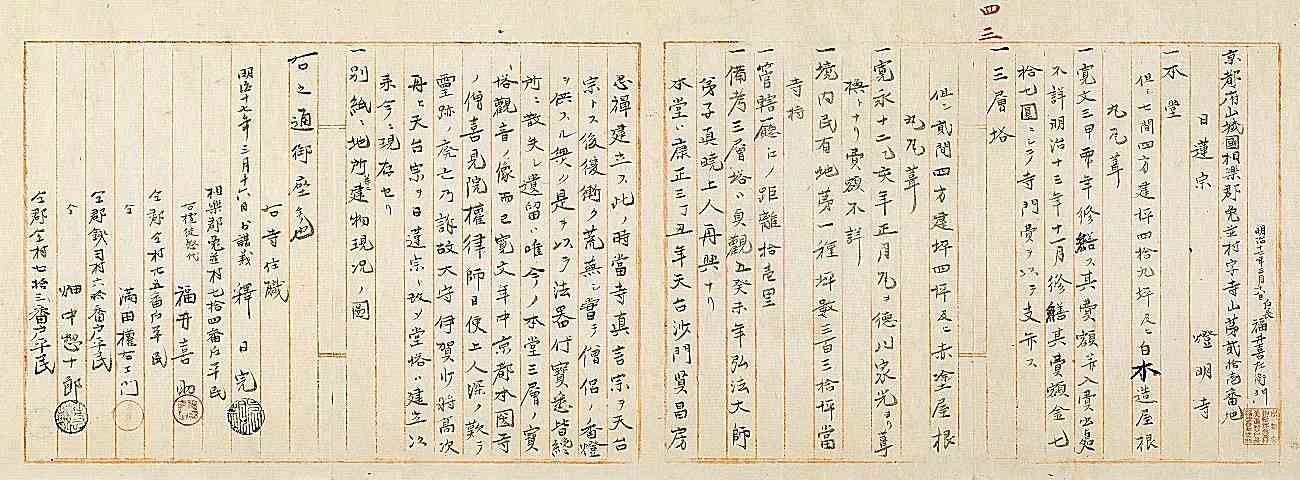 四三
明治十七年三月十六日 戸長 福井喜左衛門
京都府山城國相樂郡兎並村字寺山第貳拾壱番地
日蓮宗 燈明寺
一本堂
但シ七間四方建坪四拾九坪及ヒ白木造屋根
丸瓦葺
一寛文三甲 年修繕ス其費額并入費出処
不詳明治十三年十一月修繕其費額金七
拾七圓ニシテ寺門費ヲ以テ支弁ス
一三層塔
但シ貳間四方建坪四坪及ヒ赤塗屋根
丸瓦葺
一寛永十二乙亥年正月 ヲ德川家光ヨリ葺
換トナリ費額不詳
一境内民有地第一種坪数三百三拾坪當
寺持
一管轄廳ヒノ距離拾壱里
一備考三層塔ハ貞觀五癸未年弘法大師
弟子真暁上人再興ナリ
本堂ハ康正三丁丑年天台沙門賢昌房
忍禅建立ス此ノ時當寺真言宗ヲ天台
宗トス後復衡ク荒蕪シ嘗テ僧侶ノ香燈
ヲ供スル無シ是ヲ以テ法器什寶悉皆絶
所ニ散失シ遺留ハ唯今ノ本堂三層ノ寶
塔觀音ノ像而已寛文年中京都本圀寺
ノ僧喜見院權律師日便上人深ク歎テ
靈跡ノ廃亡乃訴故大守伊賀少将高次
再ヒ天台宗ヲ日蓮宗ニ改メ堂塔ハ建立以
来今ニ現存セリ
一別紙ニ地所並ニ建物現况ノ圖
右之通御座候也
右寺住職
明治十七年三月十六日 少講義 釋日完
相樂郡兎並村七拾四番戸平民
右檀徒惣代 福井喜
仝郡仝村九五番戸平民
仝 満田權右エ門
仝郡錢司村六拾番戸平民
仝 畑中惣十郎
仝郡仝村七拾三番戸平民